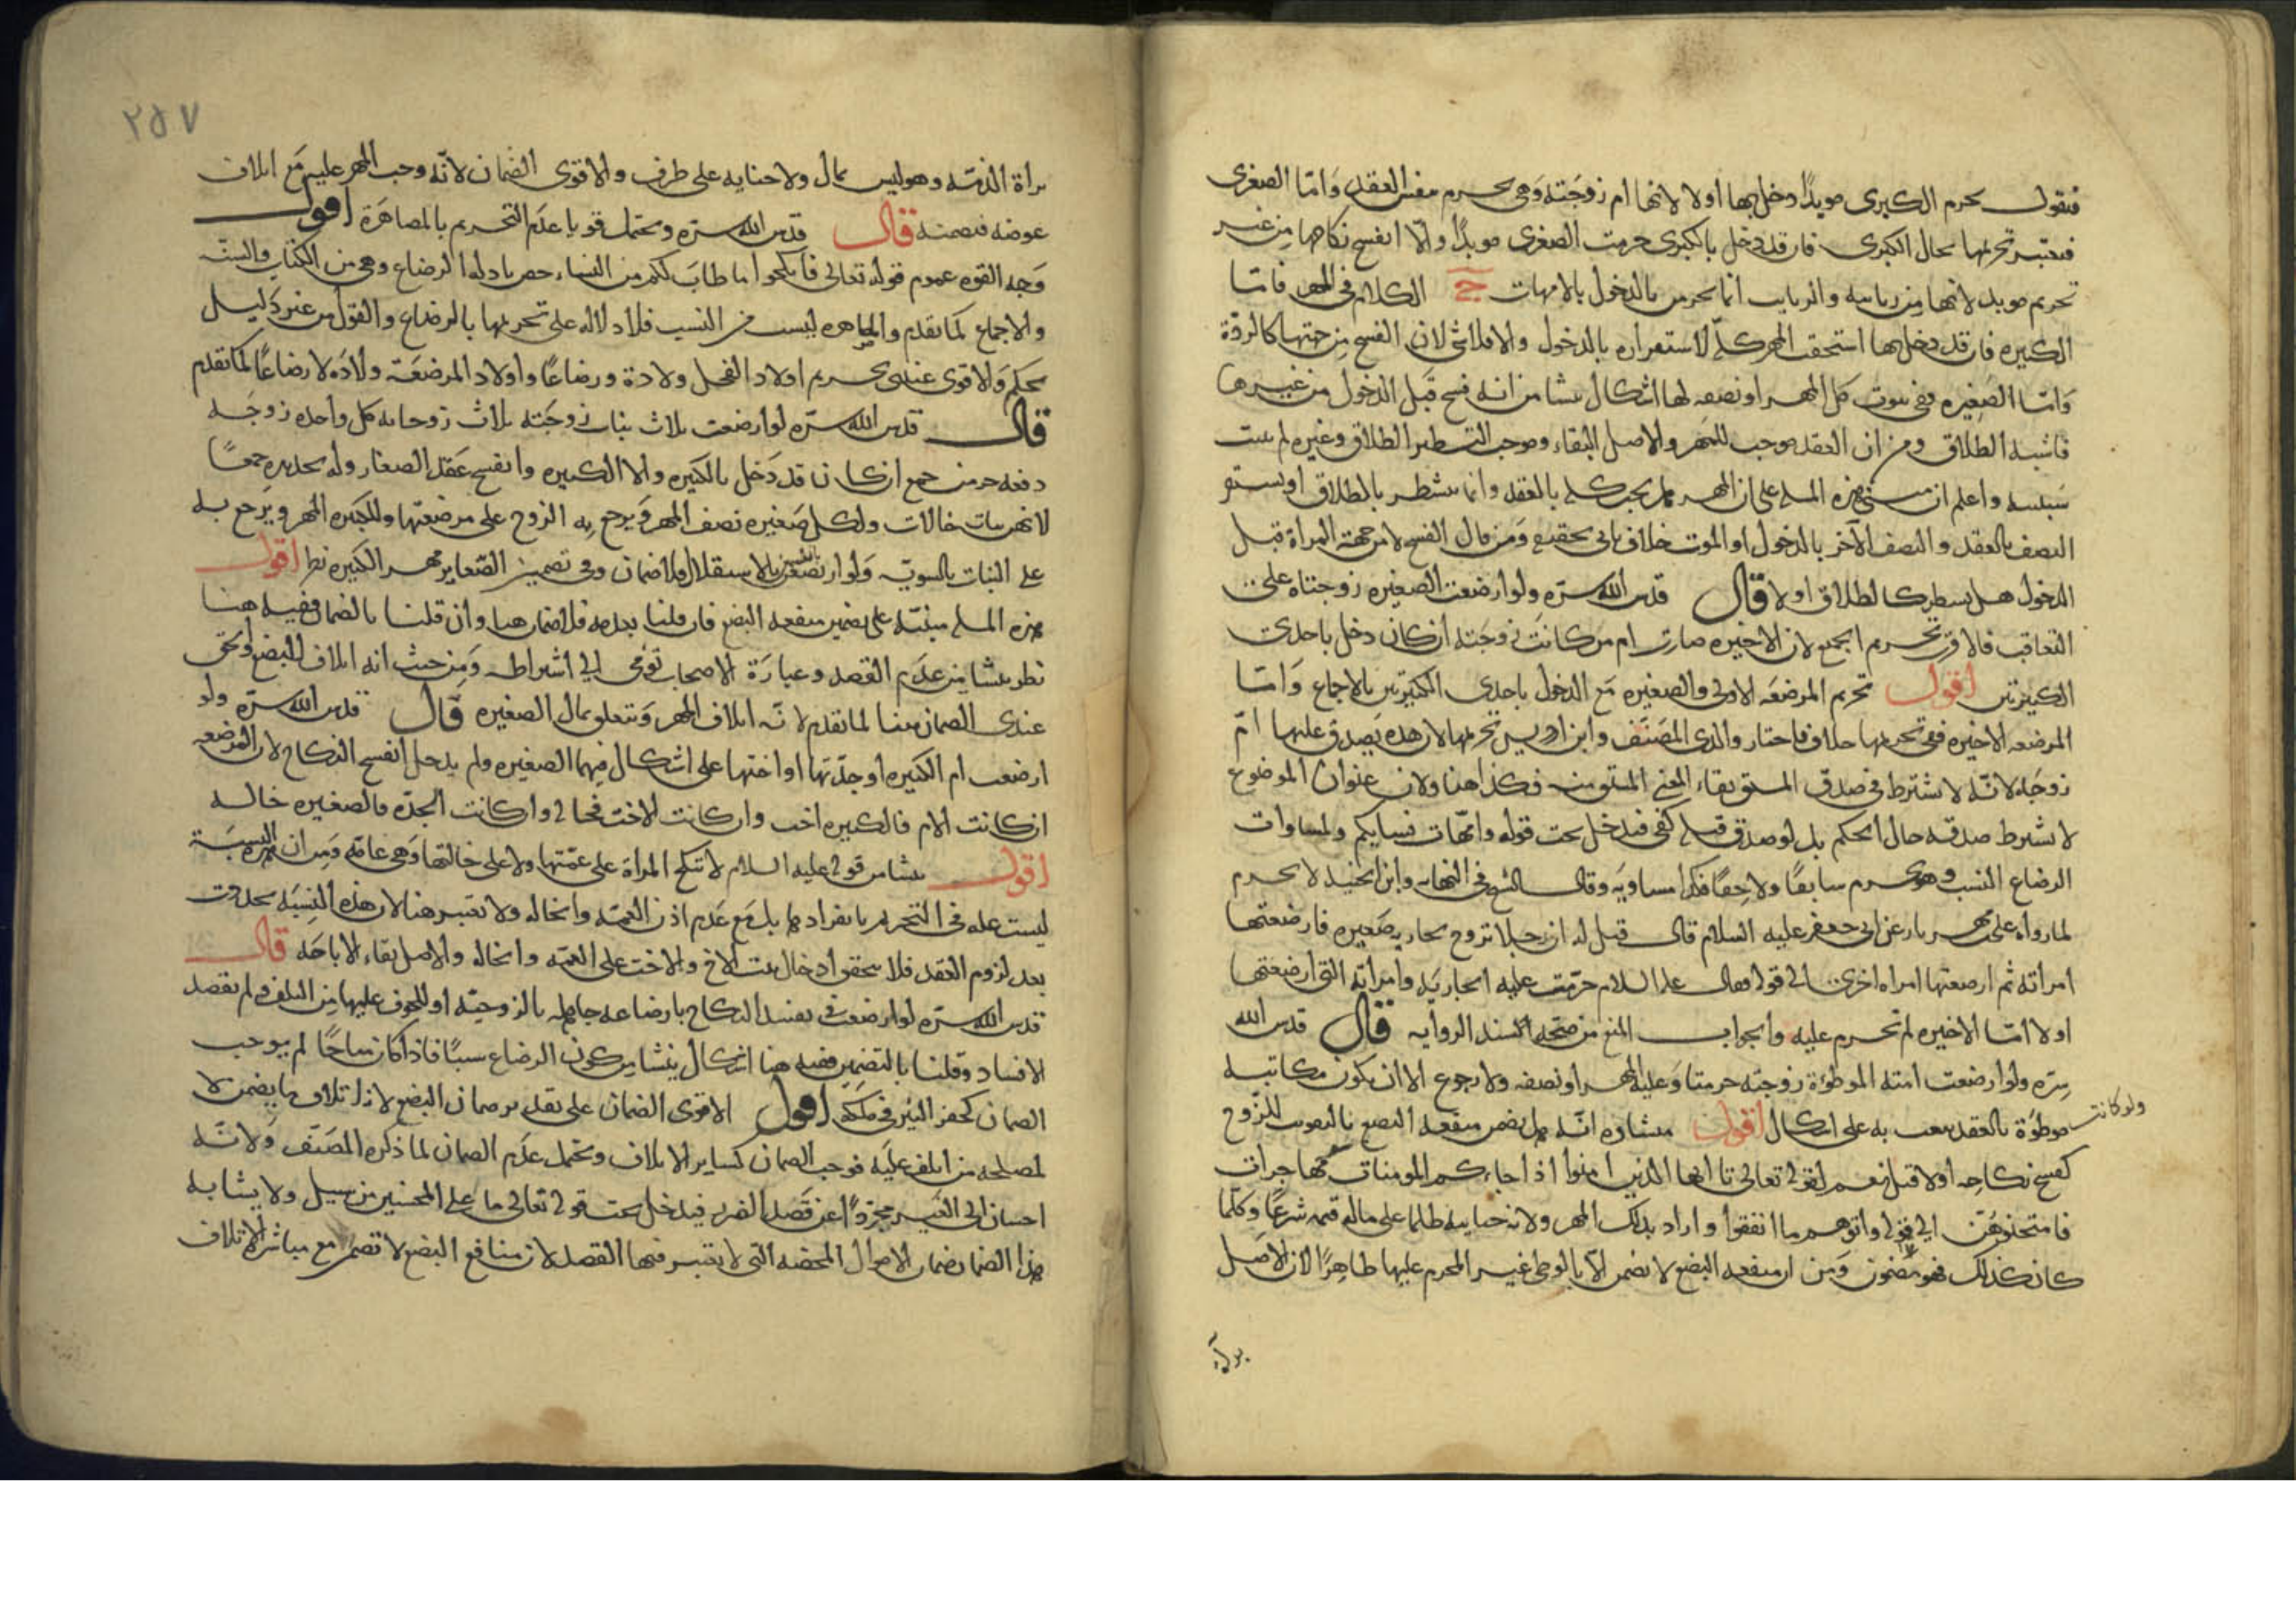 فنقول تحرم الكبرى مويدًا دخل بها اولا لانها ام زوجته وهى تحرم بنفس العقد وامّا الصغرى
فيعتبر تحريمها بحال الكبرى فان قد دخل بالكبرى حرمت الصغرى مويدًا والّا انفسخ نكاحها من غير
تحريم مويد لانها من ربايبه والربايب انما يحرمن بالدخول بالامهات ج الكلام فى المهر فامّا
الكبيره فان قد دخل بها استحقت المهر كلّه لاستقراره بالدخول والا فلا شى لان الفسخ من جهتها كالردّة
وامّا الصغيره ففى ثبوت كل المهر او نصفه لها اشكال ينشا من انه فسخ قبل الدخول من غيرها
فاشبه الطلاق ومن ان العقد موجب للمهر والاصل البقاء وموجب التشطير الطلاق وغيره لم يثبت
سببيته واعلم ان مبنى هذه المسله على ان المهر هل يجب كله بالعقد وانما يتشطر بالطلاق او يستقر
النصف بالعقد والنصف الآخر بالدخول او الموت خلاف ياتى تحقيقه ومن قال الفسخ لا من جهة المراة قبل
الدخول هل يشطر كالطلاق اولا قال قدس الله سره ولو ارضعت الصغيره زوجتاه على
التعاقب فالاقرب تحريم الجميع لان الاخيره صارت ام من كانت زوجته ان كان دخل باحدى
الكبيرتين اقول تحرم المرضعه الاولى والصغيره مع الدخول باحدى الكبيرتين بالاجماع وامّا
المرضعه الاخيره ففى تحريمها خلاف فاختار والدى المصنّف وابن ادريس تحريمها لان هذه يصدق عليها امّ
زوجته لانّه لا يشترط فى صدق المشتق بقاء المعنى المشتق منه فكذا هنا ولان عنوان الموضوع
لا يشترط صدقه حال الحكم بل لو صدق قبله كفى فيدخل تحت قوله وامّهات نسايكم ولمساوات
الرضاع النسب وهو يحرم سابقًا ولاحقًا فكذا مساويه وقال الشيخ فى النهايه وابن الجنيد لا يحرم
لما رواه على بن مهزيار عن ابى جعفر عليه السلام قال قيل له ان رجلا تزوج بجاريه صغيره فارضعتها
امراته ثم ارضعتها امراه اخرى الى قوله فقال عليه السلام حرّمت عليه الجاريه وامراته التى ارضعتها
اولا امّا الاخيره لم تحرم عليه والجواب المنع من صحّة السند الروايه قال قدس الله
سره ولو ارضعت امته الموطؤة زوجته حرمتا وعليه المهر او نصفه ولا رجوع الا ان يكون مكاتبه
ولو كانت
موطؤة بالعقد يتبعت به على اشكال اقول منشاوه انّه هل يضمن منفعه البضع بالتفويت للزوج
كفسخ نكاحه اولا قيل نعم لقوله تعالى يا ايها الذين امنوا اذا جاءكم المومنات مهاجرات
فامتحنوهنّ الى قوله واتوهم ما انفقوا واراد بذلك المهر ولانه حيايته ظلما على ماله قيمه شرعًا وكلّما
كان كذلك فهو مضمون ومن ان منفعه البضع لا تضمن الّا بالوطى غير المحرم عليها ظاهرًا لان الاصل
براة
٢٥٧
براة الذمّه وهو ليس بمال ولا جنايه على طرف والاقوى الضمان لانّه وجب المهر عليه مع اتلاف
عوضه فتضمنه قال قدس الله سره ويحتمل قويا عدم التحريم بالمصاهرة اقول
وجه القوه عموم قوله تعالى فانكحوا ما طاب لكم من النساء خص بادله الرضاع وهى من الكتاب والسنّه
والاجماع كما تقدم والمصاهره ليست من النسب فلا دلاله على تحريمها بالرضاع والقول من غير دليل
تحكم والاقوى عندى تحريم اولاد الفحل ولادة ورضاعًا واولاد المرضعة ولادة لا رضاعًا لما تقدم
قال قدس الله سره لو ارضعت ثلاث بنات زوجته ثلاث زوجاته كل واحده زوجه
دفعه حرمن جمع ان كان قد دخل بالكبيره والا الكبيره وانفسخ عقد الصغار وله تجديده جمعًا
لانهن بنات خالات ولكل صغيره نصف المهر ويرجع به الزوج على مرضعتها وللكبيره المهر ويرجع به
على البنات بالسويّه ولو ارتضعن بانفسهن بالاستقلال فلا ضمان وفى تضمين الصغاير مهر الكبيره نظر اقول
هذه المسله مبنيّه على تضمين منفعه البضع فان قلنا بعدمه فلا ضمان هنا وان قلنا بالضمان ففيه هنا
نظر ينشا من عدم القصد وعبارة الاصحاب تومى الى اشتراطه ومن حيث انه اتلاف للبضع ويقوى
عندى الضمان هنا لما تقدم لانّه اتلاف المهر ويتعلق بمال الصغيره قال قدس الله سره ولو
ارضعت ام الكبيره او جدّتها او اختها على اشكال فيهما الصغيره ولم يدخل انفسخ النكاح لان المرضعه
ان كانت الام فالكبيره اخت وان كانت الاخت فخاله وان كانت الجدّه فالصغيره خاله
اقول ينشا من قوله عليه السلام لا تنكح المراة على عمّتها ولا على خالتها وهى عامّه ومن ان هذه النسبة
ليست عله فى التحريم بانفرادها بل مع عدم اذن العمّه والخاله ولا تعتبر هنا لان هذه النسبه تجددت
بعد لزوم العقد فلا يتحقق ادخال بنت الاخ والاخت على العمّه والخاله والاصل بقاء الاباحه قال
قدس الله سره لو ارضعت من يفسد النكاح بارضاعه جاهله بالزوجيّه او للخوف عليها من التلف ولم تقصد
الافساد وقلنا بالتضمين ففيه هنا اشكال ينشا من كون الرضاع سببًا فاذا كان مباحًا لم يوجب
الضمان كحفر البير فى ملكه اقول الاقوى الضمان على تقدير ضمان البضع لانه اتلاف ما يضمن لا
لمصلحه من اتلف عليه فوجب الضمان كساير الاتلاف ويحتمل عدم الضمان لما ذكره المصنّف ولانّه
احسان الى الغير مجردًا عن قصد الضرر فيدخل تحت قوله تعالى ما على المحسنين من سبيل ولا يشابه
هذا الضمان ضمان الاموال المحضه التى لا يعتبر فيها القصد لان منافع البضع لا تضمن مع مباشر الاتلاف